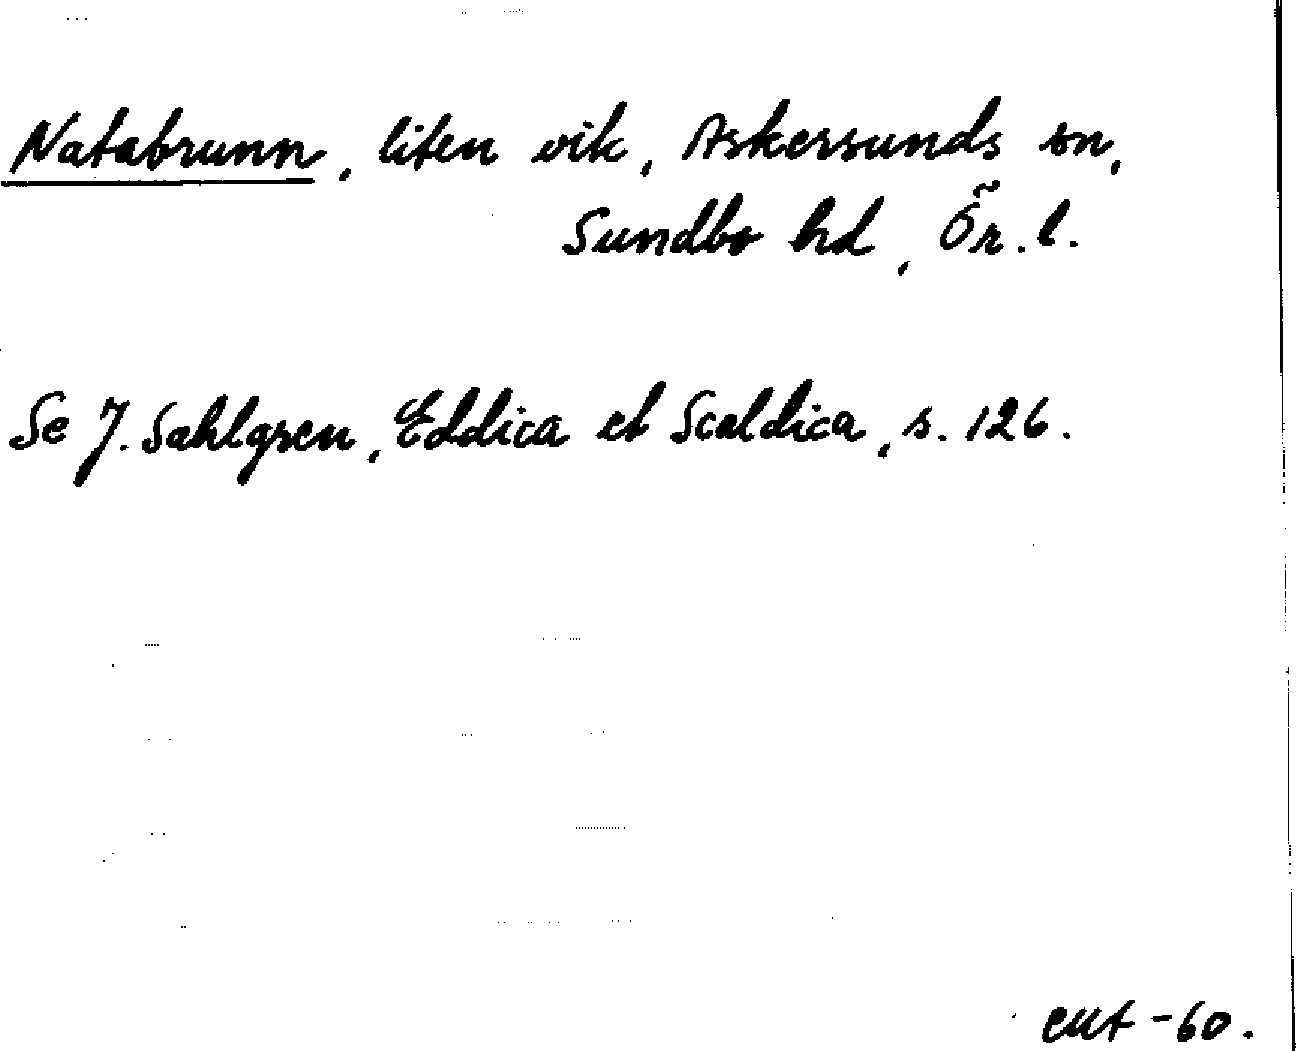 Natabrunn, liten vik, Askersunds sn,
Sundbo hd, Ör. l.
Se J. Sahlgren, Eddica et Scaldica, s. 126.
-60.